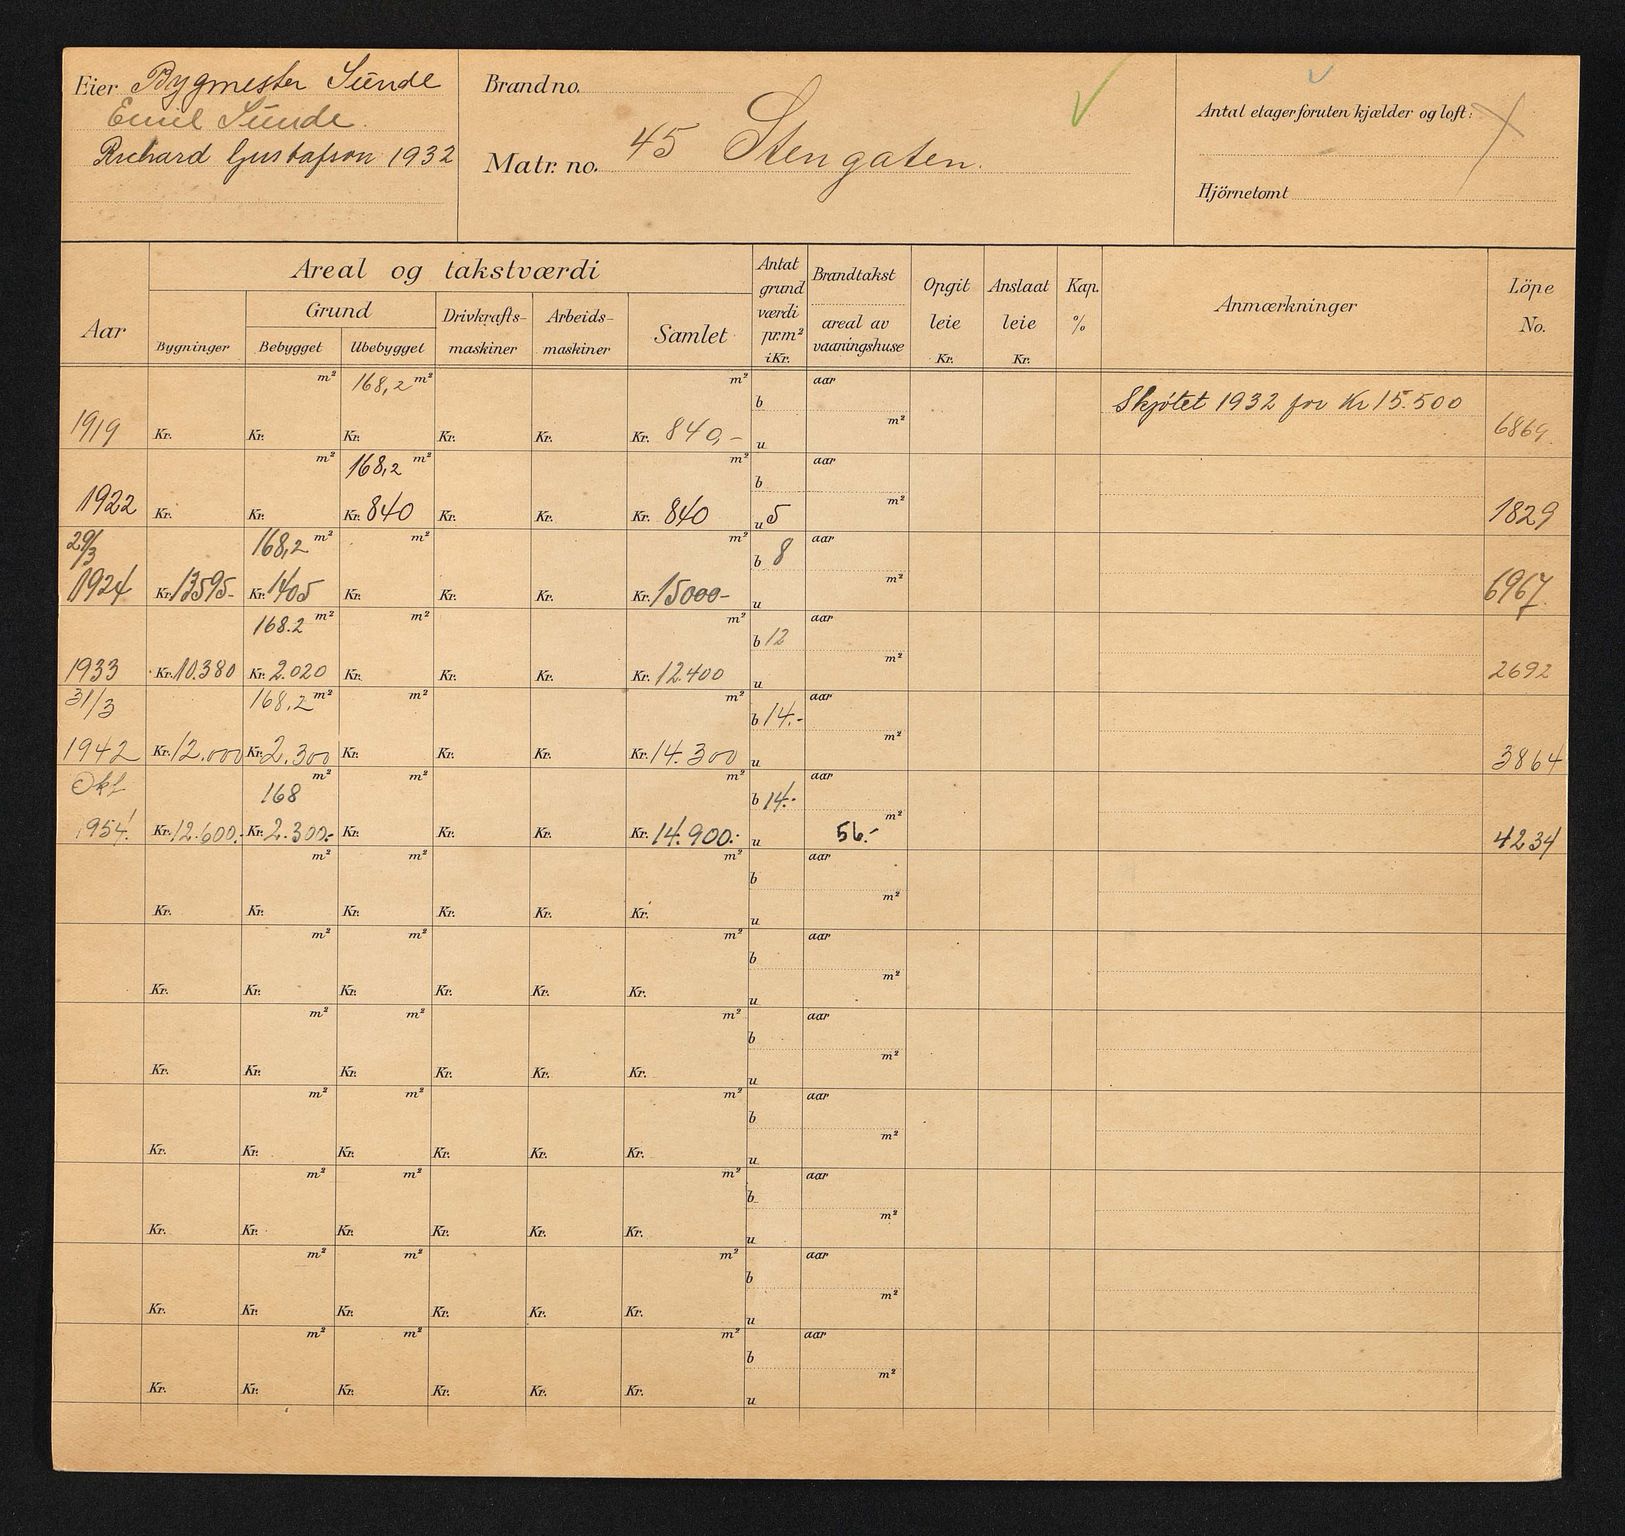 Eier Bygmester Sunde
Emil Sunde.
Richard Gustafson 1932
Brand no.
Matr. no. 45 Stengaten.
Antal etager foruten kjælder og loft:
Hjörnetomt
Aar
Areal og takstværdi
Bygninger
Grund
Bebygget Ubebygget
Drivkrafts-
maskiner
Arbeids-
maskiner
Samlet
Antat
grund
værdi
pr. m²
i Kr.
Brandtakst
areal av
vaaningshuse
Opgit
leie
Kr.
Anslaat
leie
Kr.
Kap.
%
Anmærkninger
Löpe
No.
m² 168,2 m² m² b aar Skjötet 1932 for Kr 15.500
1919 Kr. Kr. Kr. Kr. Kr. Kr. 840,- u m² 6869.
m² 168,2 m² m² b aar
1922 Kr. Kr. Kr. 840 Kr. Kr. Kr. 840 u 5 m² 1829
29/3 168,2 m² m² m² b 8 aar
1924 Kr. 13595- Kr. 1405 Kr. Kr. Kr. Kr. 15000- u m² 6967.
168.2 m² m² m² b 12 aar
1933 Kr. 10.380 Kr. 2.020 Kr. Kr. Kr. Kr. 12.400 u m² 2692
31/3 168,2 m² m² m² b 14.- aar
1942 Kr. 12.000 Kr. 2.300 Kr. Kr. Kr. Kr. 14.300 u m² 3864
Okt. 168 m² m² m² b 14.- aar
1954. Kr. 12.600.- Kr. 2.300.- Kr. Kr. Kr. Kr. 14.900.- u 56.- m² 4234
m² m² m² b aar
Kr. Kr. Kr. Kr. Kr. Kr. u m²
m² m² m² b aar
Kr. Kr. Kr. Kr. Kr. Kr. u m²
m² m² m² b aar
Kr. Kr. Kr. Kr. Kr. Kr. u m²
m² m² m² b aar
Kr. Kr. Kr. Kr. Kr. Kr. u m²
m² m² m² b aar
Kr. Kr. Kr. Kr. Kr. Kr. u m²
m² m² m² b aar
Kr. Kr. Kr. Kr. Kr. Kr. u m²
m² m² m² b aar
Kr. Kr. Kr. Kr. Kr. Kr. u m²